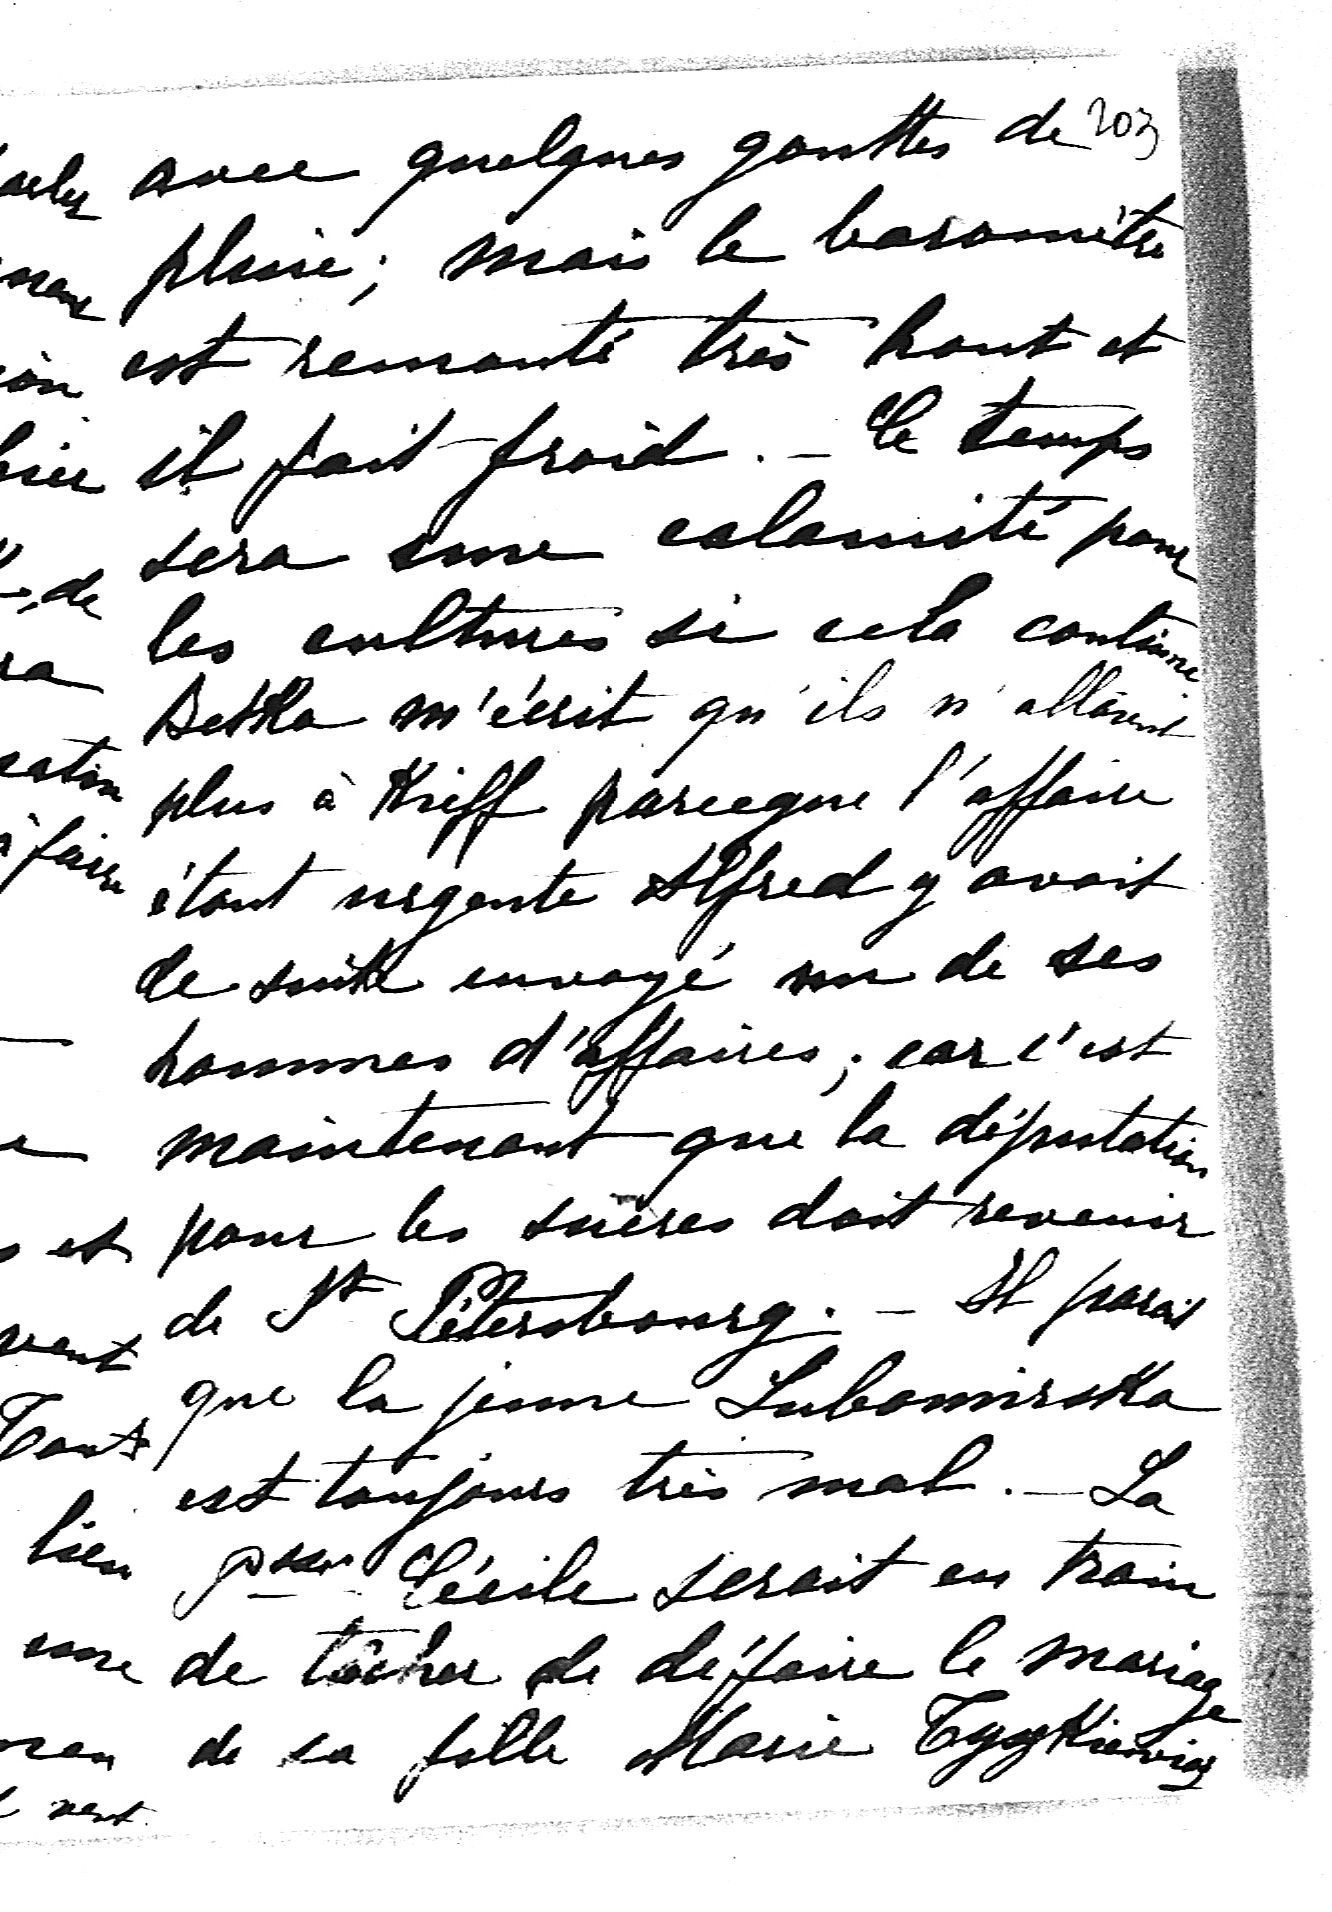 203
avec quelques gouttes de
pluie; mais le baromètre
est remonté très haut et
il fait froid. — Ce temps
sera une calamité pour
les cultures si cela continue
Betka m'écrit qu'ils n'allaient
plus à Kieff parceque l'affaire
étant urgente Alfred y avait
de suite envoyé un de ses
hommes d'affaires; car c'est
maintenant que la députation
pour les sucres doit revenir
de St Pétersbourg. — Il parait
que la jeune Lubomirska
est toujours très mal. — La
Pcesse Cécile serait en train
de tâcher de défaire le mariage
de sa fille Marie Tyszkiewicz
hier
de
à faire
et
Tout
bien
une
vent.